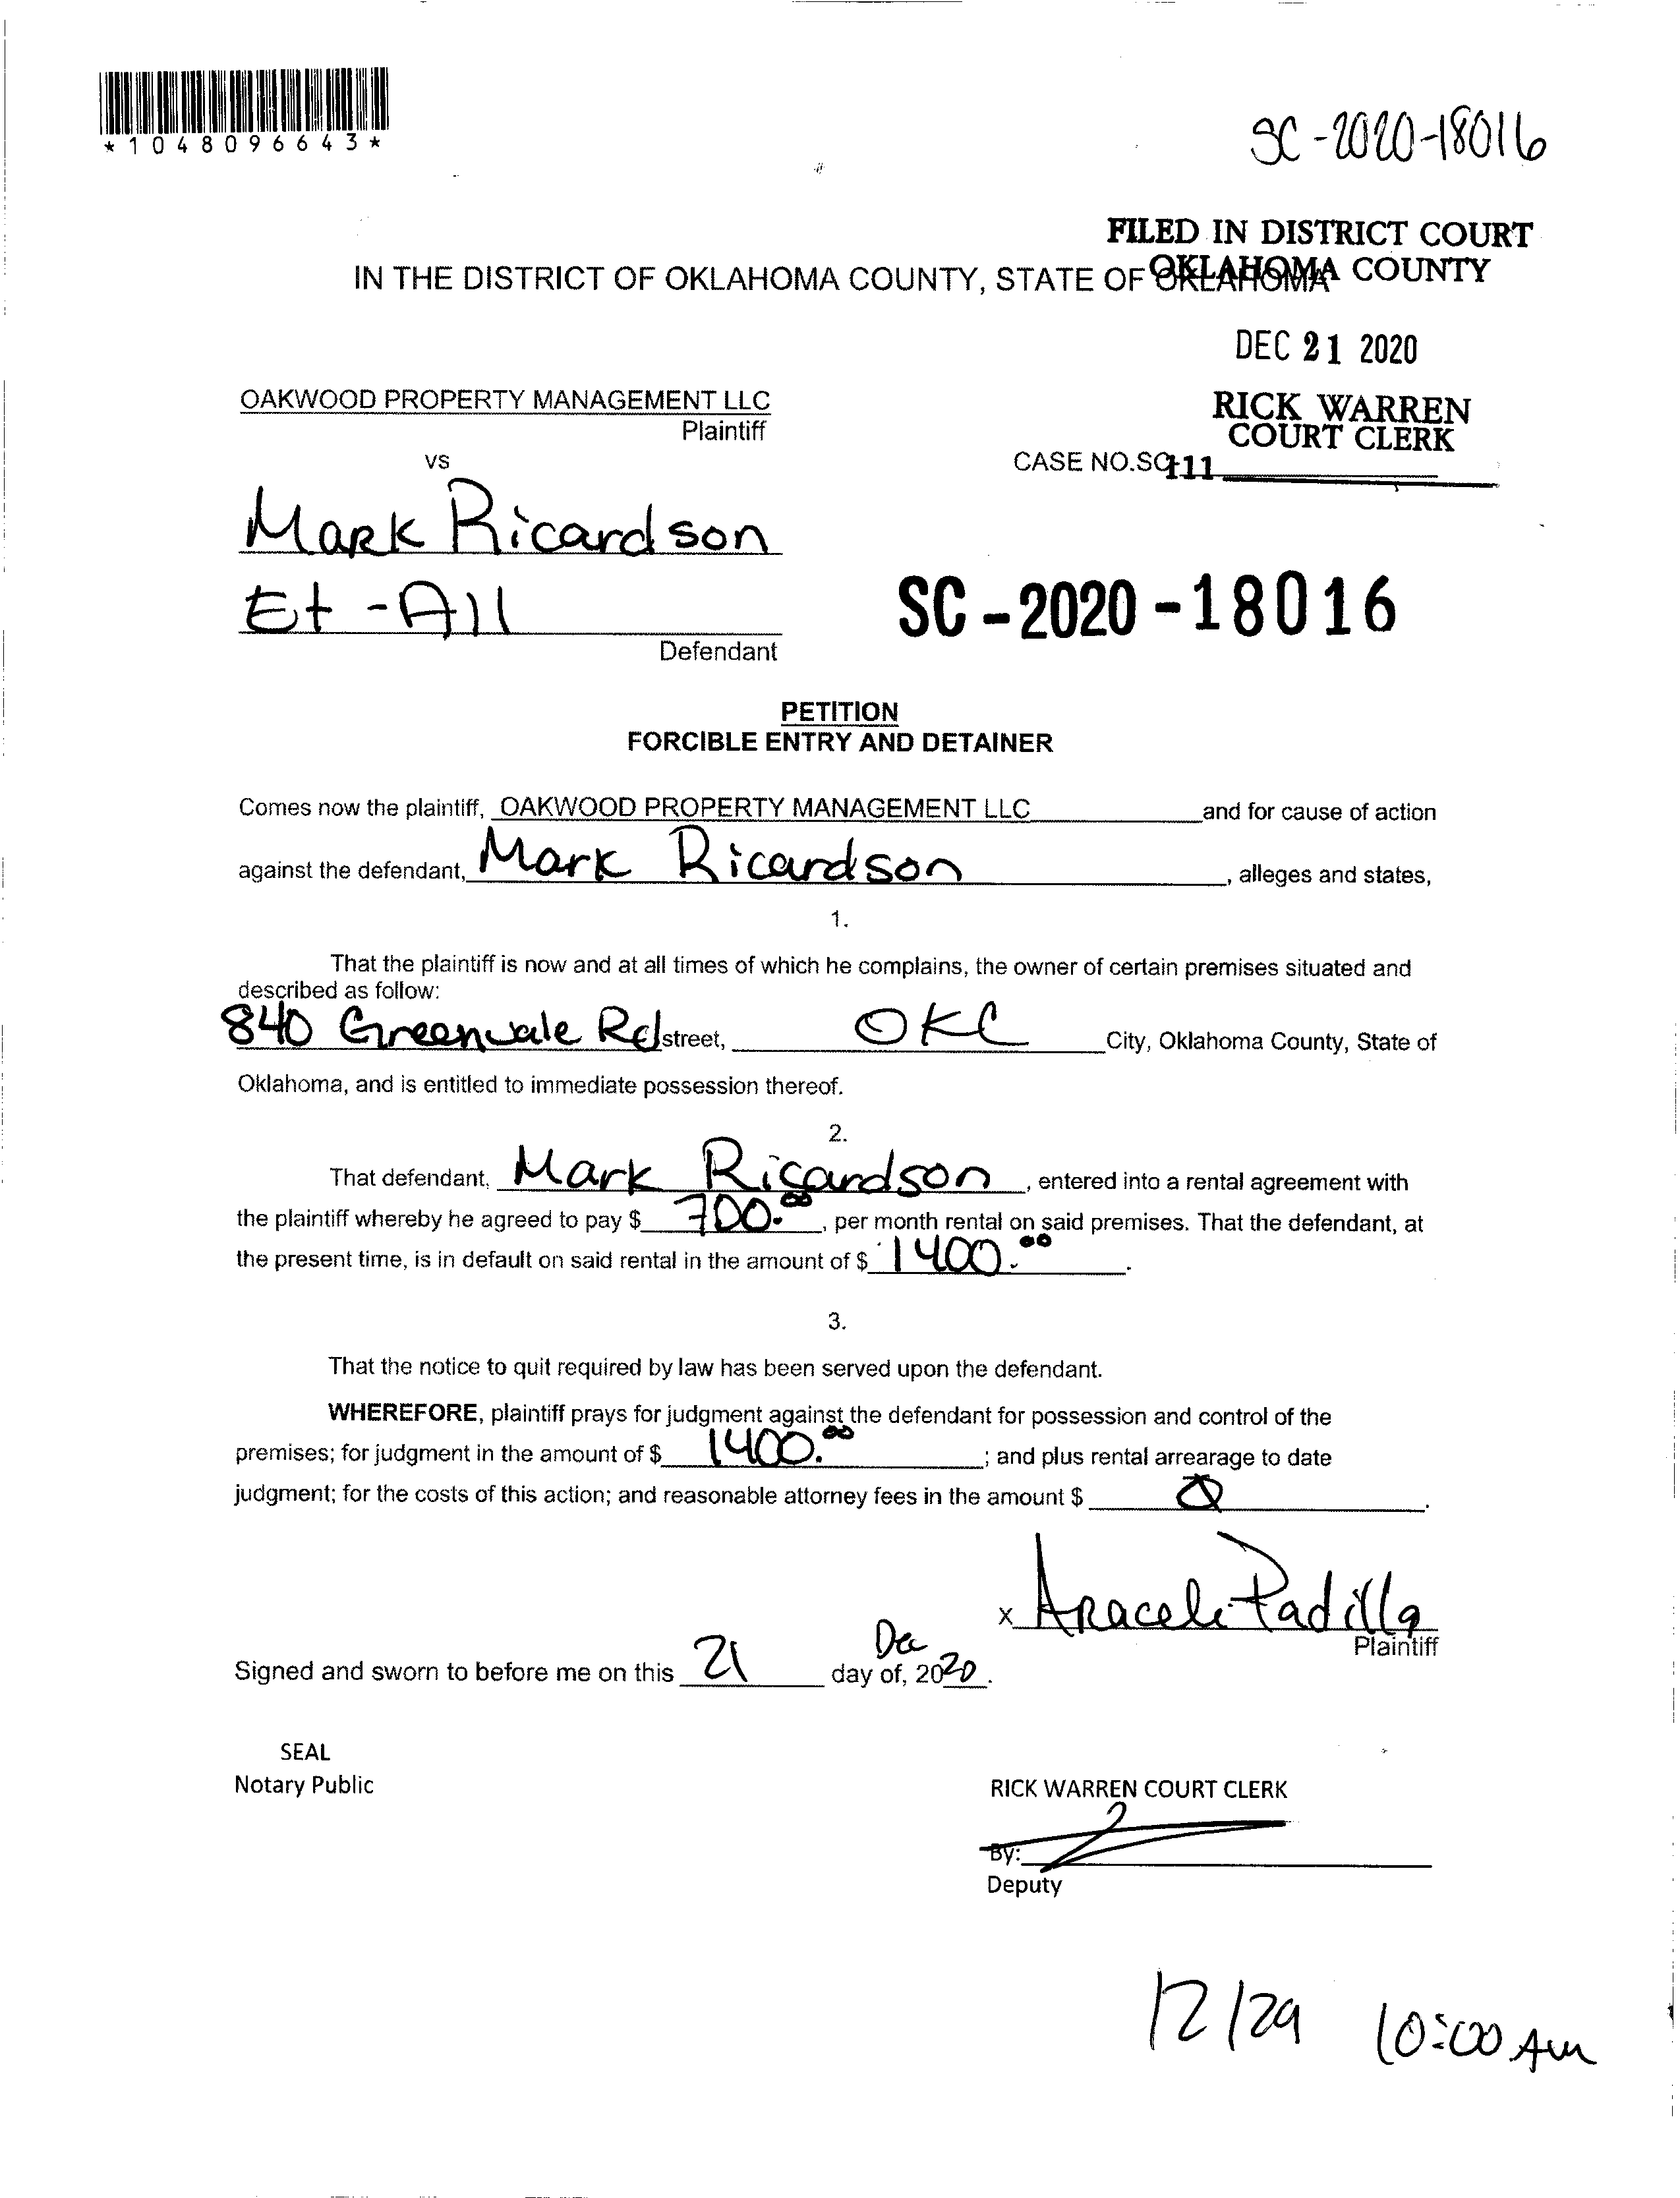 *1048096643*
SC-2020-18016
FILED IN DISTRICT COURT
OKLAHOMA COUNTY
IN THE DISTRICT OF OKLAHOMA COUNTY, STATE OF OKLAHOMA
DEC 21 2020
OAKWOOD PROPERTY MANAGEMENT LLC
Plaintiff
RICK WARREN
COURT CLERK
vs
CASE NO.SC
111
Mark Ricardson
Et-All
Defendant
SC-2020-18016
PETITION
FORCIBLE ENTRY AND DETAINER
Comes now the plaintiff, OAKWOOD PROPERTY MANAGEMENT LLC and for cause of action
against the defendant, Mark Ricardson, alleges and states,
1.
That the plaintiff is now and at all times of which he complains, the owner of certain premises situated and
described as follow:
840 Greenvale Rd street, OKC City, Oklahoma County, State of
Oklahoma, and is entitled to immediate possession thereof.
2.
That defendant, Mark Ricardson, entered into a rental agreement with
the plaintiff whereby he agreed to pay $ 700.00, per month rental on said premises. That the defendant, at
the present time, is in default on said rental in the amount of $ 1400.00.
3.
That the notice to quit required by law has been served upon the defendant.
WHEREFORE, plaintiff prays for judgment against the defendant for possession and control of the
premises; for judgment in the amount of $ 1400.00; and plus rental arrearage to date
judgment; for the costs of this action; and reasonable attorney fees in the amount $ 0.
x Araceli Padilla
Plaintiff
Signed and sworn to before me on this 21 day of, Dec 2020.
SEAL
Notary Public
RICK WARREN COURT CLERK
By:
Deputy
12/29 10:00 Am